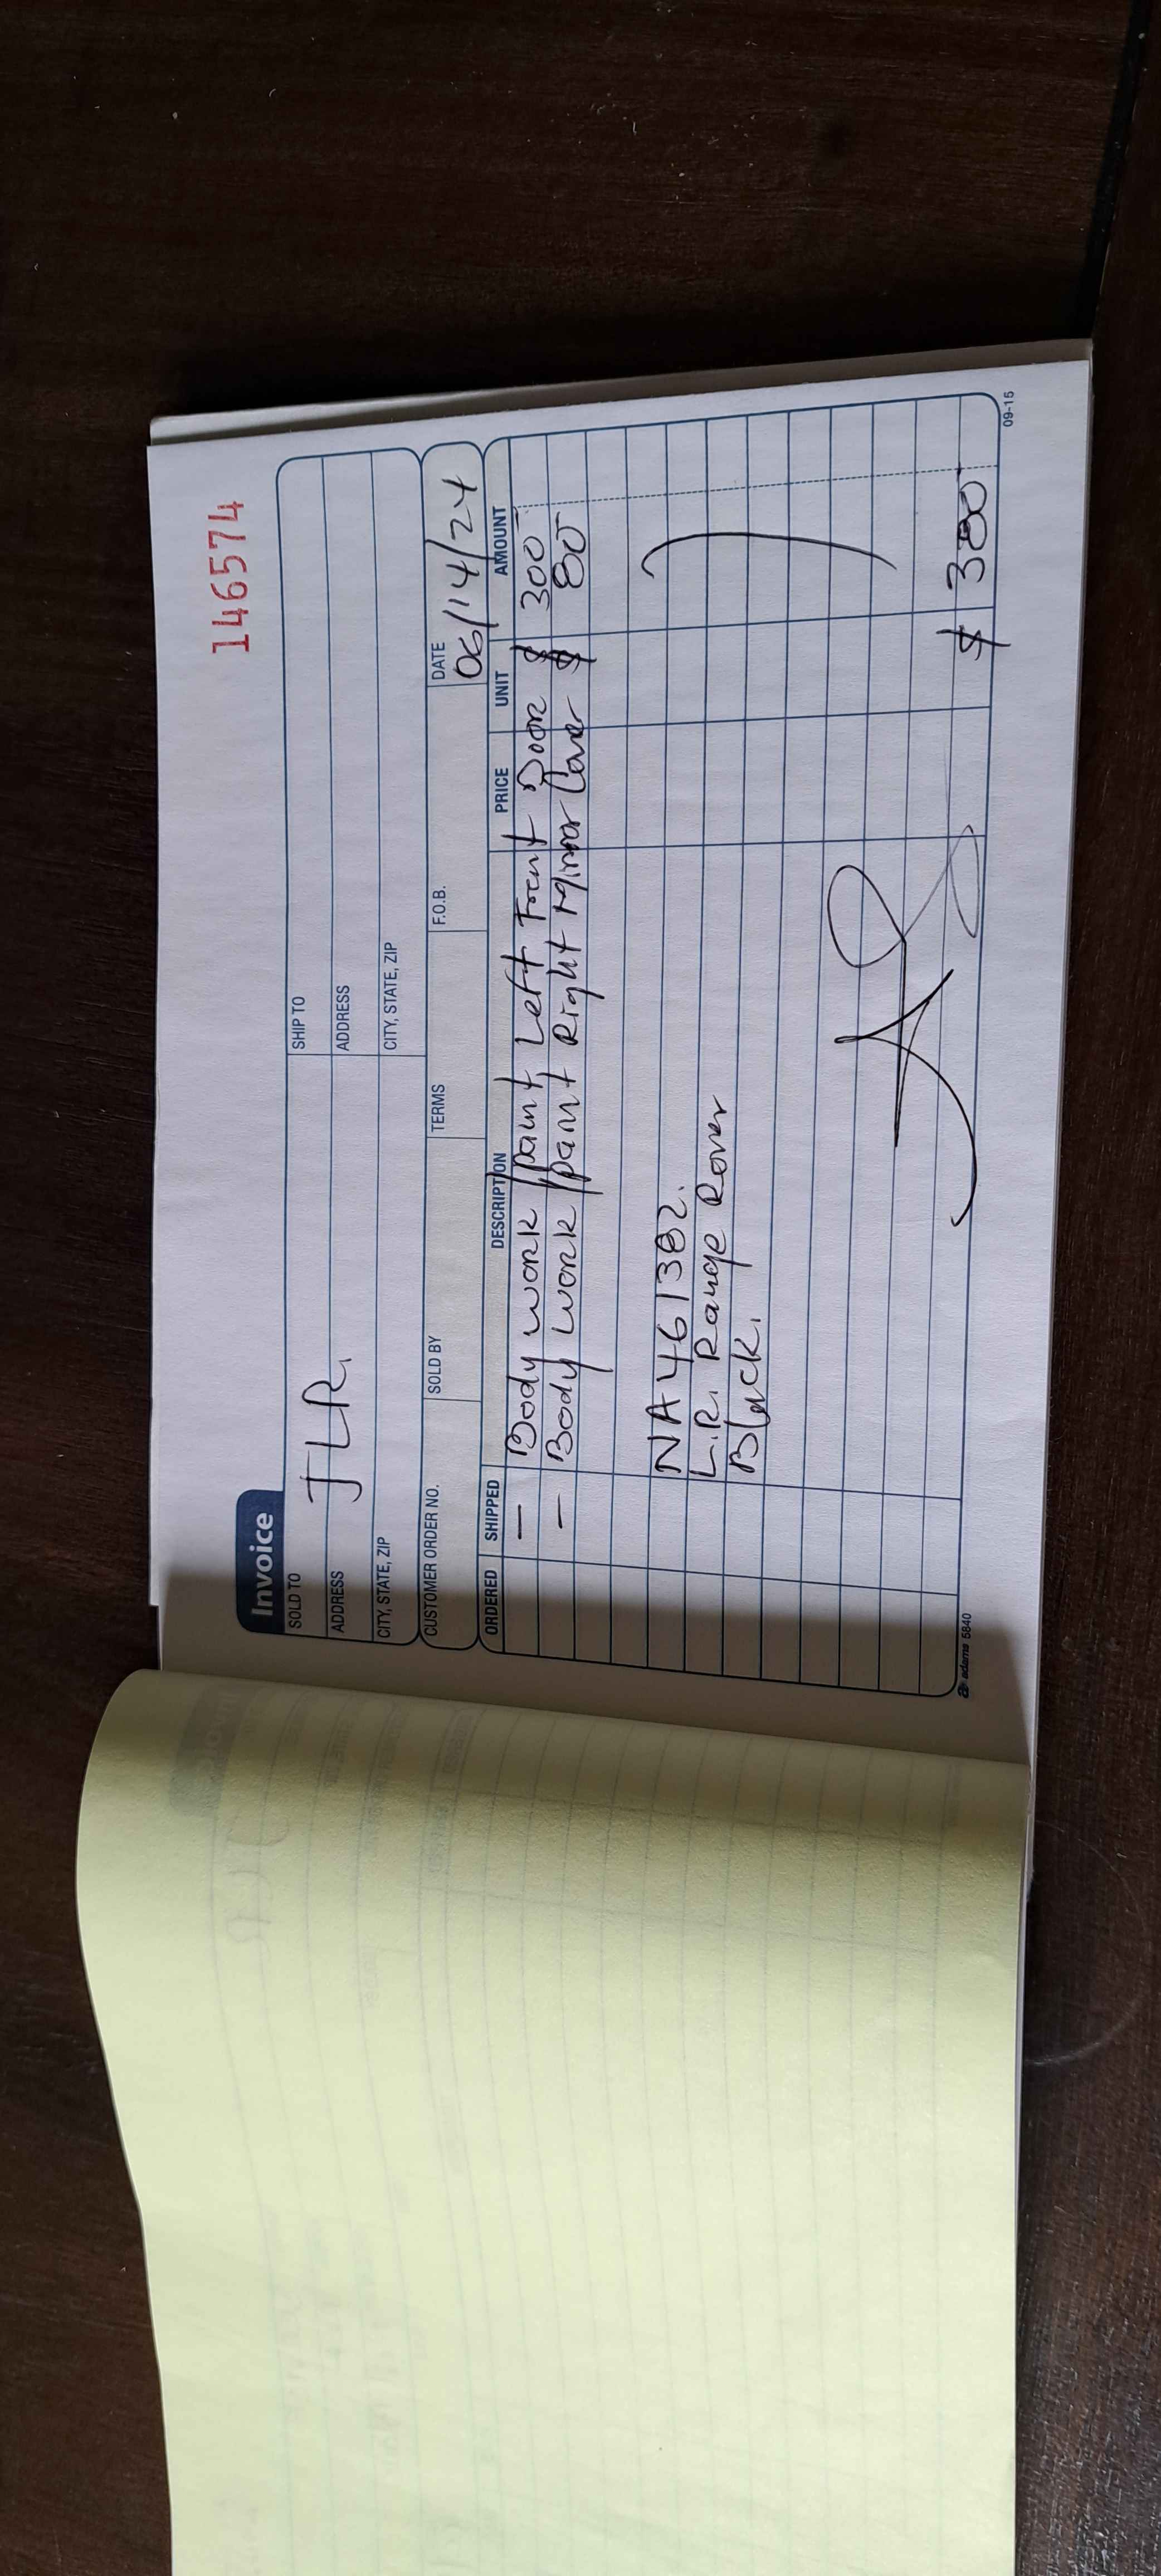 146574
Invoice
SOLD TO JLR. SHIP TO
ADDRESS ADDRESS
CITY, STATE, ZIP CITY, STATE, ZIP
CUSTOMER ORDER NO. SOLD BY TERMS F.O.B. DATE
06/14/24
ORDERED SHIPPED DESCRIPTION PRICE UNIT AMOUNT
— Body work/paint Left Front Door $ 300
— Body work/paint Right Mirror Cover $ 80
NA461382.
L.R. Range Rover
Black.
$ 380
adams 5840 09-15